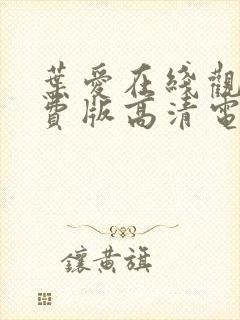 葉愛在綫觀
費版高清電
鑲黄旗